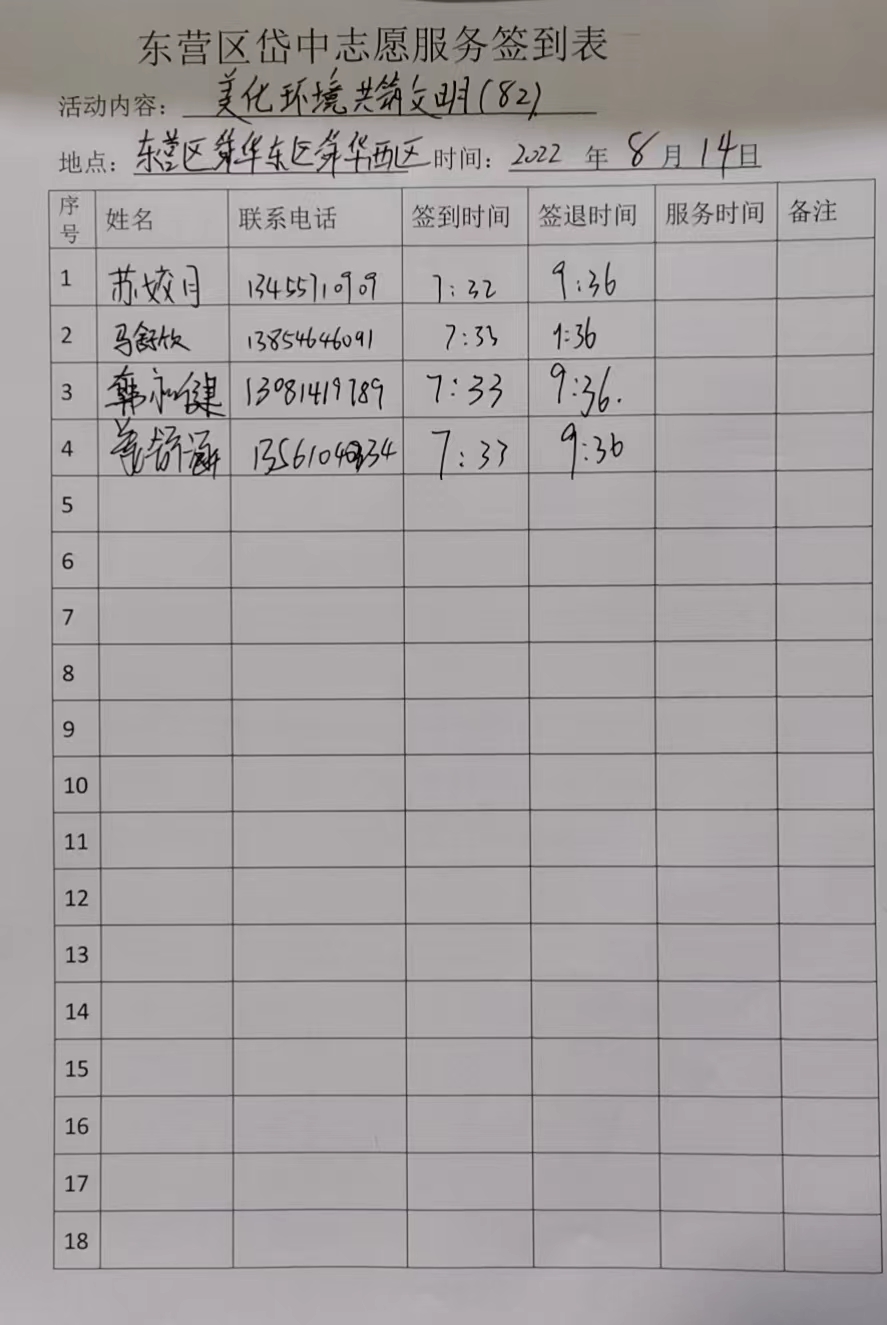 东营区岱中志愿服务签到表
活动内容：美化环境共筑文明(82)
地点：东营区舜华东区舜华西区 时间：2022 年 8 月 14 日
序号 姓名 联系电话 签到时间 签退时间 服务时间 备注
1 苏姣月 13455710909 7:32 9:36
2 马舒欣 13854646091 7:33 9:36
3 韩永健 13081419789 7:33 9:36.
4 13561040334 7:33 9:36
5
6
7
8
9
10
11
12
13
14
15
16
17
18